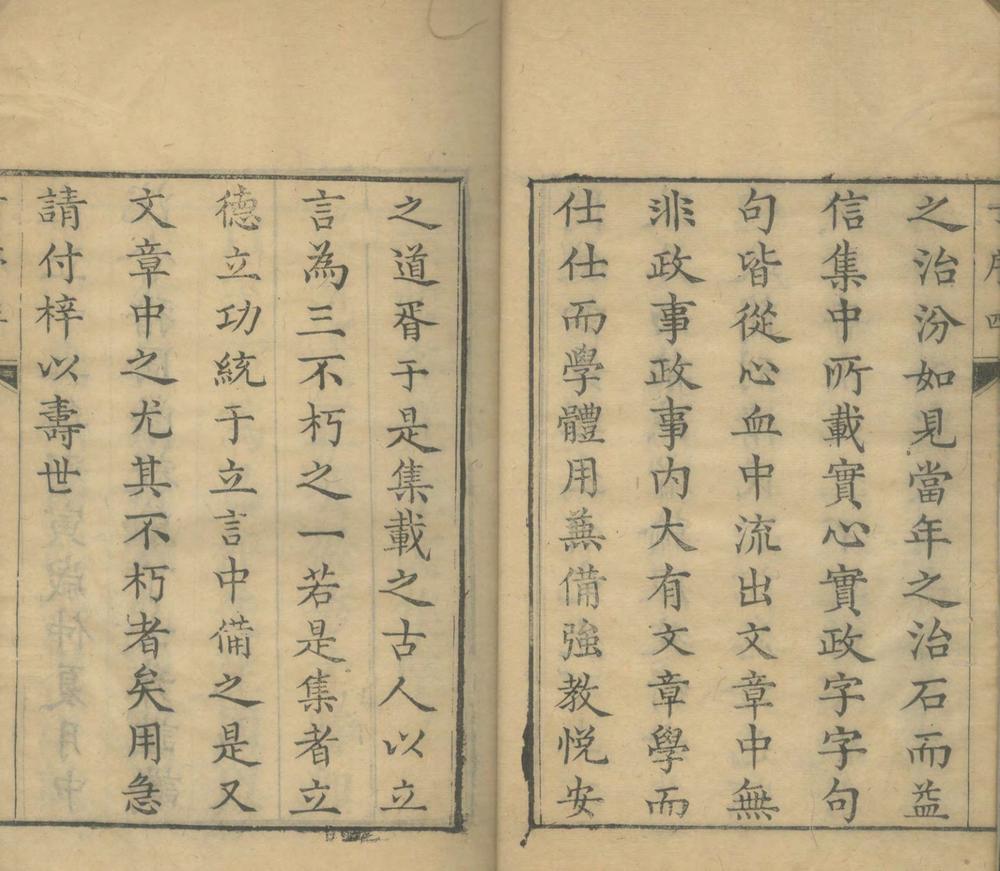 之治汾如見當年之治石而益
信集中所載實心實政字字句
句皆從心血中流出文章中無
非政事政事內大有文章學而
仕仕而學體用兼備強教悅安
之道胥于是集載之古人以立
言為三不朽之一若是集者立
德立功統于立言中備之是又
文章中之尤其不朽者矣用急
請付梓以壽世